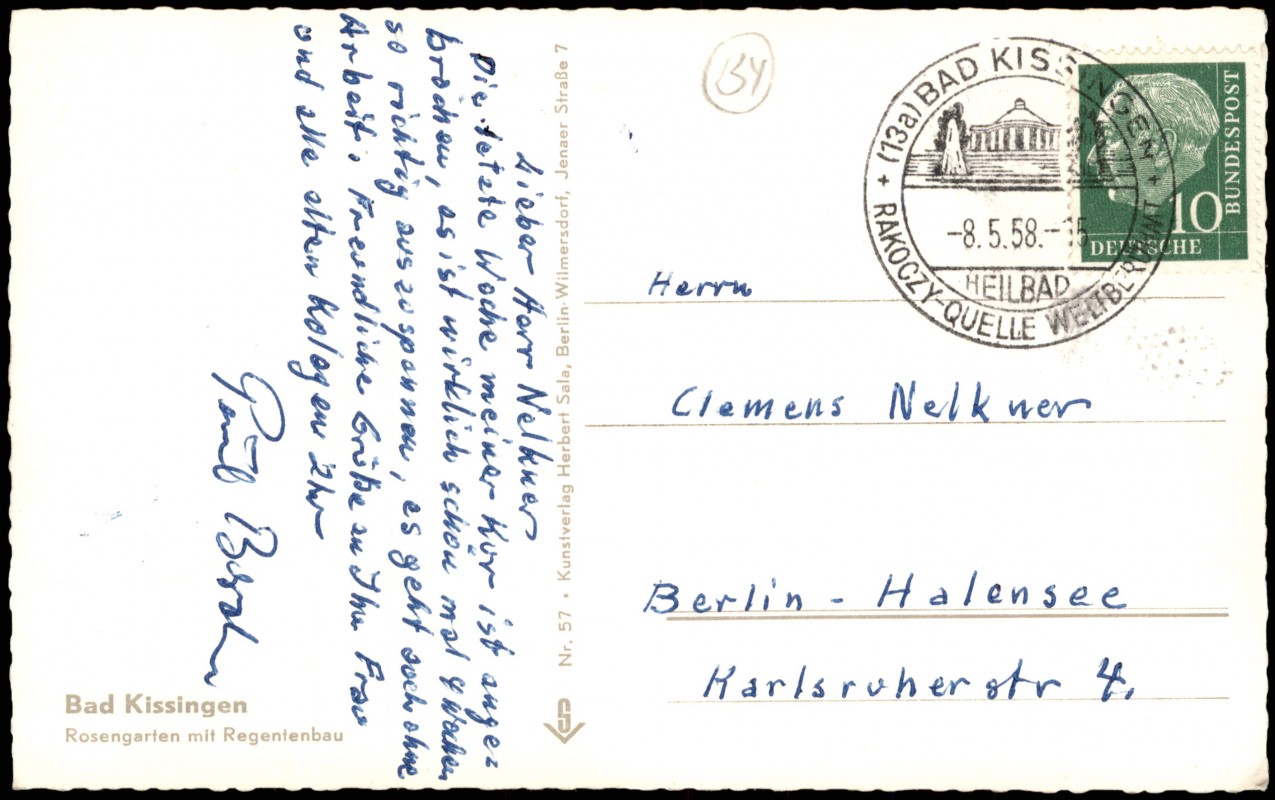 Lieber Herr Nelkner
Die letzte Woche meiner Kur ist ange=
brochen, es ist wirklich schon mal 4 Wochen
so richtig auszuspannen, es geht auch ohne
Arbeit. Freundliche Grüße an Ihre Frau
und alle alten Kollegen Ihr
Paul
Bad Kissingen
Rosengarten mit Regentenbau
Nr. 57 • Kunstverlag Herbert Sala, Berlin-Wilmersdorf, Jenaer Straße 7
BY
(13a) BAD KISSINGEN
-8.5.58.-15
HEILBAD
RAKOCZY-QUELLE WELTBERÜHMT
10
BUNDESPOST
DEUTSCHE
Herrn
Clemens Nelkner
Berlin - Halensee
Karlsruherstr 4.